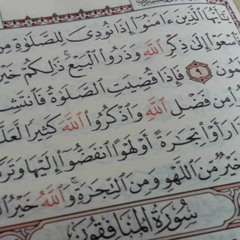 يَٰٓأَيُّهَا ٱلَّذِينَ ءَامَنُوٓا۟ إِذَا نُودِىَ لِلصَّلَوٰةِ مِن
فَٱسْعَوْا۟ إِلَىٰ ذِكْرِ ٱللَّهِ وَذَرُوا۟ ٱلْبَيْعَ ۚ ذَٰلِكُمْ خَيْرٌ
٩ فَإِذَا قُضِيَتِ ٱلصَّلَوٰةُ فَٱنتَشِرُ
مِن فَضْلِ ٱللَّهِ وَٱذْكُرُوا۟ ٱللَّهَ كَثِيرًا لَّعَلَّ
رَأَوْا۟ تِجَٰرَةً أَوْ لَهْوًا ٱنفَضُّوٓا۟ إِلَيْهَا وَتَرَ
خَيْرٌ مِّنَ ٱللَّهْوِ وَمِنَ ٱلتِّجَٰرَةِ ۚ وَٱللَّهُ خَيْرُ
سُورَةُ ٱلْمُنَافِقُونَ